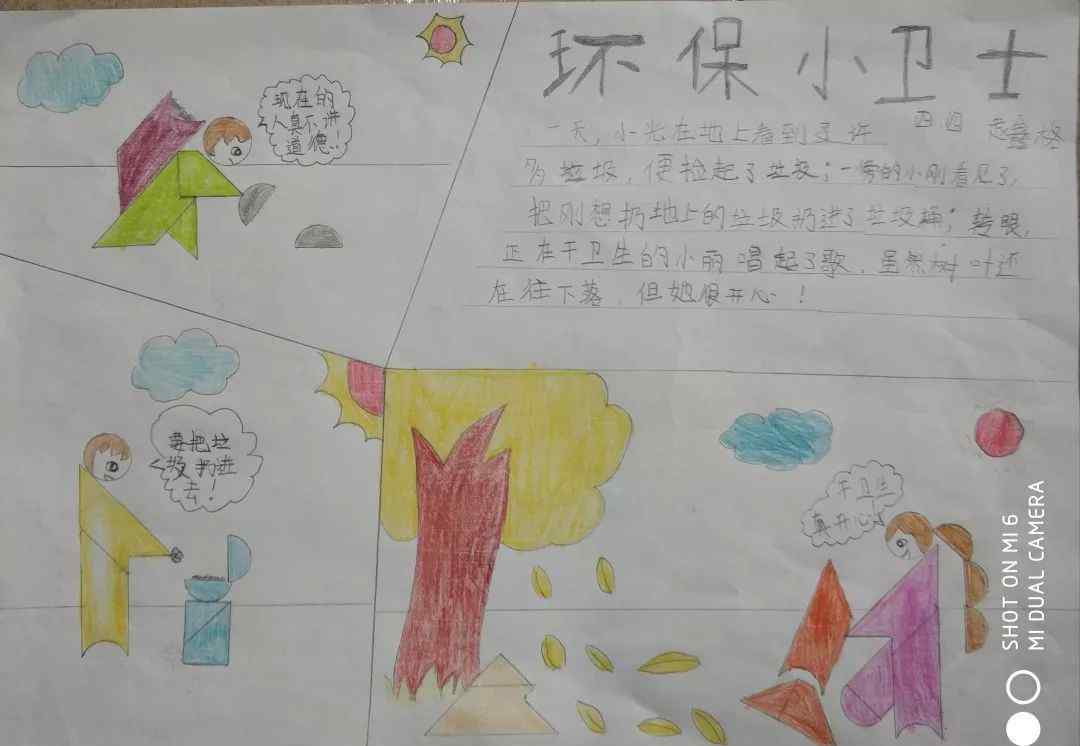 环保小卫士
四四
一天,小光在地上看到了许
多垃圾,便捡起了垃圾;一旁的小刚看见了,
把刚想扔地上的垃圾扔进了垃圾桶;转眼,
正在干卫生的小丽唱起了歌,虽然树叶还
在往下落,但她很开心!
现在的
人真不讲
道德!!
要把垃
圾扔进
去!
干卫生
真开心!
SHOT ON MI 6
MI DUAL CAMERA